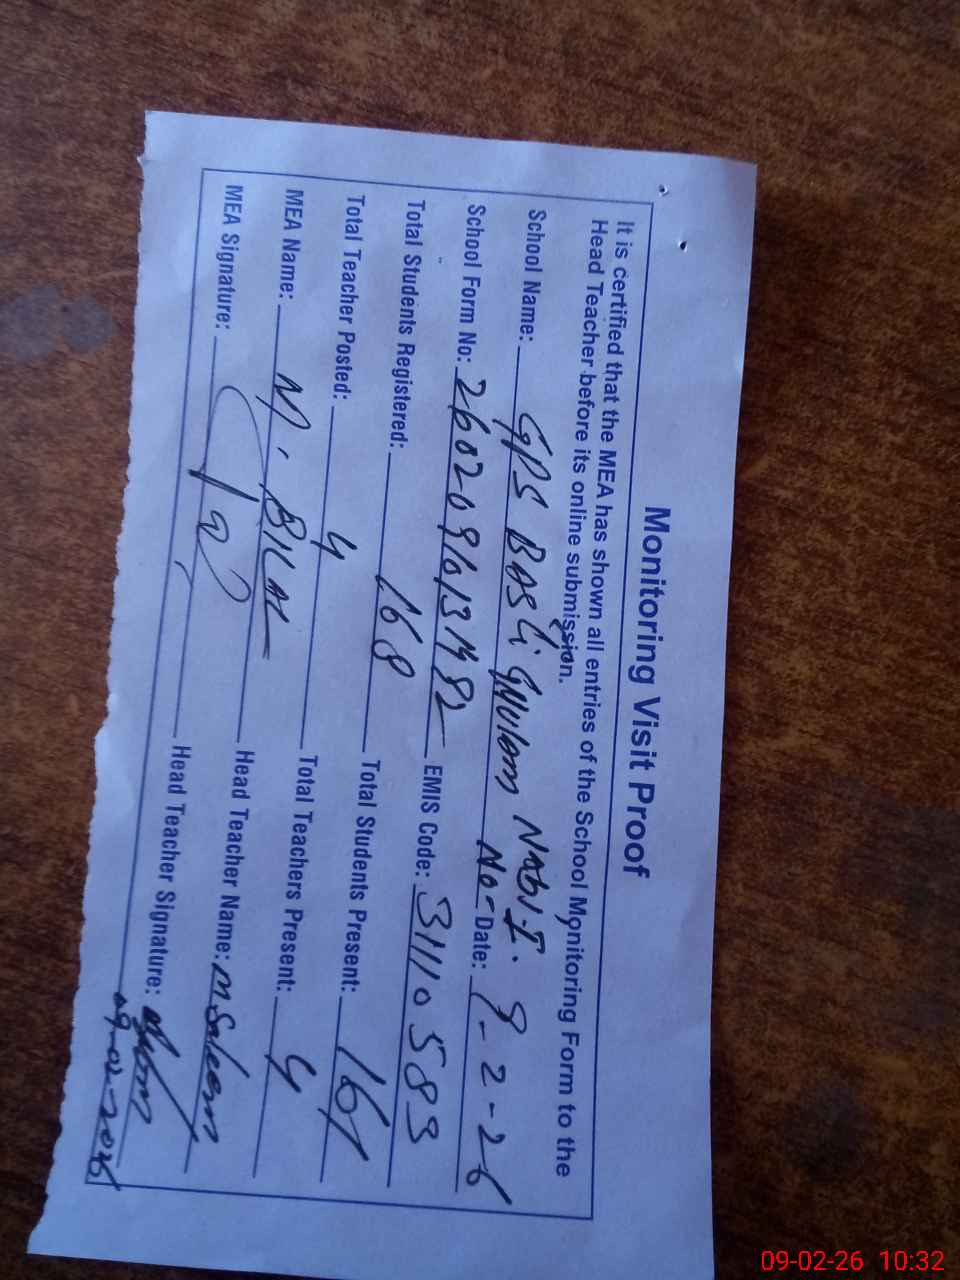 Monitoring Visit Proof
It is certified that the MEA has shown all entries of the School Monitoring Form to the
Head Teacher before its online submission.
School Name: GPS BASTi GHULAM NABI-I. No- Date: 9-2-26
School Form No: EMIS Code: 31110583
Total Students Registered: 168 Total Students Present: 161
Total Teacher Posted: 4 Total Teachers Present: 4
MEA Name: M. BILAL Head Teacher Name: M Saleem
MEA Signature: Head Teacher Signature:
09-02-2026
09-02-26 10:32